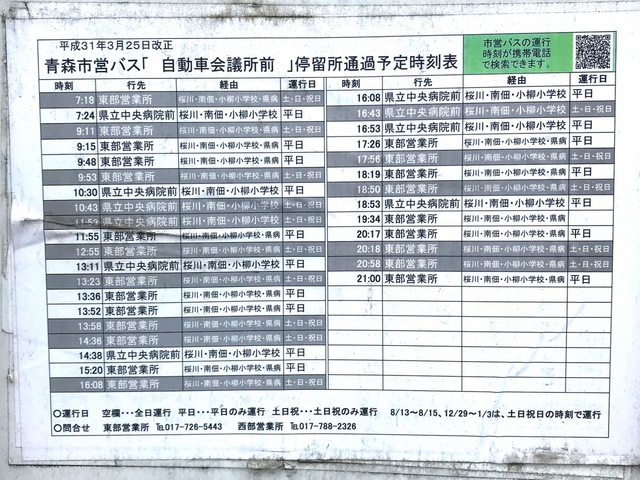 平成31年3月25日改正
青森市営バス「 自動車会議所前 」停留所通過予定時刻表
市営バスの運行
時刻が携帯電話
で検索できます。
時刻 行先 経由 運行日
7:18 東部営業所 桜川・南佃・小柳小学校・県病 土・日・祝日
7:24 県立中央病院前 桜川・南佃・小柳小学校 平日
9:11 東部営業所 桜川・南佃・小柳小学校・県病 土・日・祝日
9:15 東部営業所 桜川・南佃・小柳小学校・県病 平日
9:48 東部営業所 桜川・南佃・小柳小学校・県病 平日
9:53 東部営業所 桜川・南佃・小柳小学校・県病 土・日・祝日
10:30 県立中央病院前 桜川・南佃・小柳小学校 平日
10:43 県立中央病院前 桜川・南佃・小柳小学校 土・日・祝日
11:53 県立中央病院前 桜川・南佃・小柳小学校 土・日・祝日
11:55 東部営業所 桜川・南佃・小柳小学校・県病 平日
12:55 東部営業所 桜川・南佃・小柳小学校・県病 土・日・祝日
13:11 県立中央病院前 桜川・南佃・小柳小学校 平日
13:23 東部営業所 桜川・南佃・小柳小学校・県病 土・日・祝日
13:36 東部営業所 桜川・南佃・小柳小学校・県病 平日
13:52 東部営業所 桜川・南佃・小柳小学校・県病 平日
13:58 東部営業所 桜川・南佃・小柳小学校・県病 土・日・祝日
14:36 東部営業所 桜川・南佃・小柳小学校・県病 土・日・祝日
14:38 県立中央病院前 桜川・南佃・小柳小学校 平日
15:20 東部営業所 桜川・南佃・小柳小学校・県病 平日
16:08 東部営業所 桜川・南佃・小柳小学校・県病 土・日・祝日
時刻 行先 経由 運行日
16:08 県立中央病院前 桜川・南佃・小柳小学校 平日
16:43 県立中央病院前 桜川・南佃・小柳小学校 土・日・祝日
16:53 県立中央病院前 桜川・南佃・小柳小学校 平日
17:26 東部営業所 桜川・南佃・小柳小学校・県病 平日
17:56 東部営業所 桜川・南佃・小柳小学校・県病 土・日・祝日
18:19 東部営業所 桜川・南佃・小柳小学校・県病 平日
18:50 東部営業所 桜川・南佃・小柳小学校・県病 土・日・祝日
18:53 県立中央病院前 桜川・南佃・小柳小学校 平日
19:34 東部営業所 桜川・南佃・小柳小学校・県病
20:17 東部営業所 桜川・南佃・小柳小学校・県病 平日
20:18 東部営業所 桜川・南佃・小柳小学校・県病 土・日・祝日
20:58 東部営業所 桜川・南佃・小柳小学校・県病 土・日・祝日
21:00 東部営業所 桜川・南佃・小柳小学校・県病 平日
○運行日 空欄･･･全日運行 平日･･･平日のみ運行 土日祝･･･土日祝のみ運行 8/13～8/15、12/29～1/3は、土日祝日の時刻で運行
○問合せ 東部営業所 ℡017-726-5443 西部営業所 ℡017-788-2326